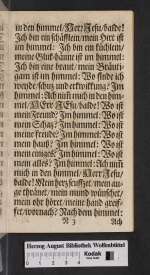 in den himmel/ HErr JEsu/ balde!
Jch bin ein schäfflein/ mein Hert ist
im himmel: Jch bin ein küchlein/
meine Gluckhänne ist im himmel:
Jch bin eine braut/ mein Bräuti-
gam ist im himmel: Wo finde ich
weyde/schutz und erkwickung? Jm
himmel: Ach nim mich in den him-
mel/ HErr JEsu/ balde! Wo ist
mein Freund? Jm himmel: Wo ist
mein Schatz? Jm himmel: Wo ist
meine freude? Jm himmel: Wo ist
mein hauß? Jm himmel: Wo ist
mein ewiges? Jm himmel: Wo ist
mein alles? Jm himmel: Ach nim
mich in den himmel/ HErr JEsu/
balde! Mein hertz seufftzet/ mein au-
ge thränet/ mein mund wünschet/
mein ohr höret/ meine hand greif-
fet/ wornach? Nach dem himmel:
N 3 Ach
Herzog August Bibliothek Wolfenbüttel
Kodak